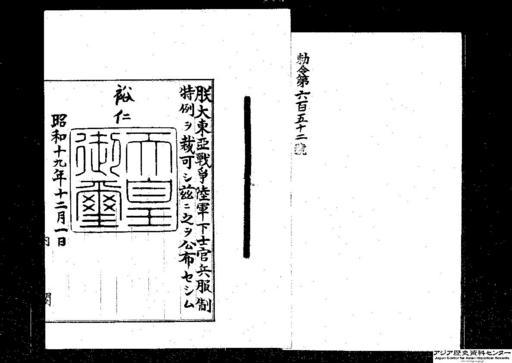 勅令第六百五十二號
朕大東亞戰爭陸軍下士官兵服制
特例ヲ裁可シ茲ニ之ヲ公布セシム
裕仁
天皇
御璽
昭和十九年十二月一日
内閣
アジア歴史資料センター
Japan Center for Asian Historical Records